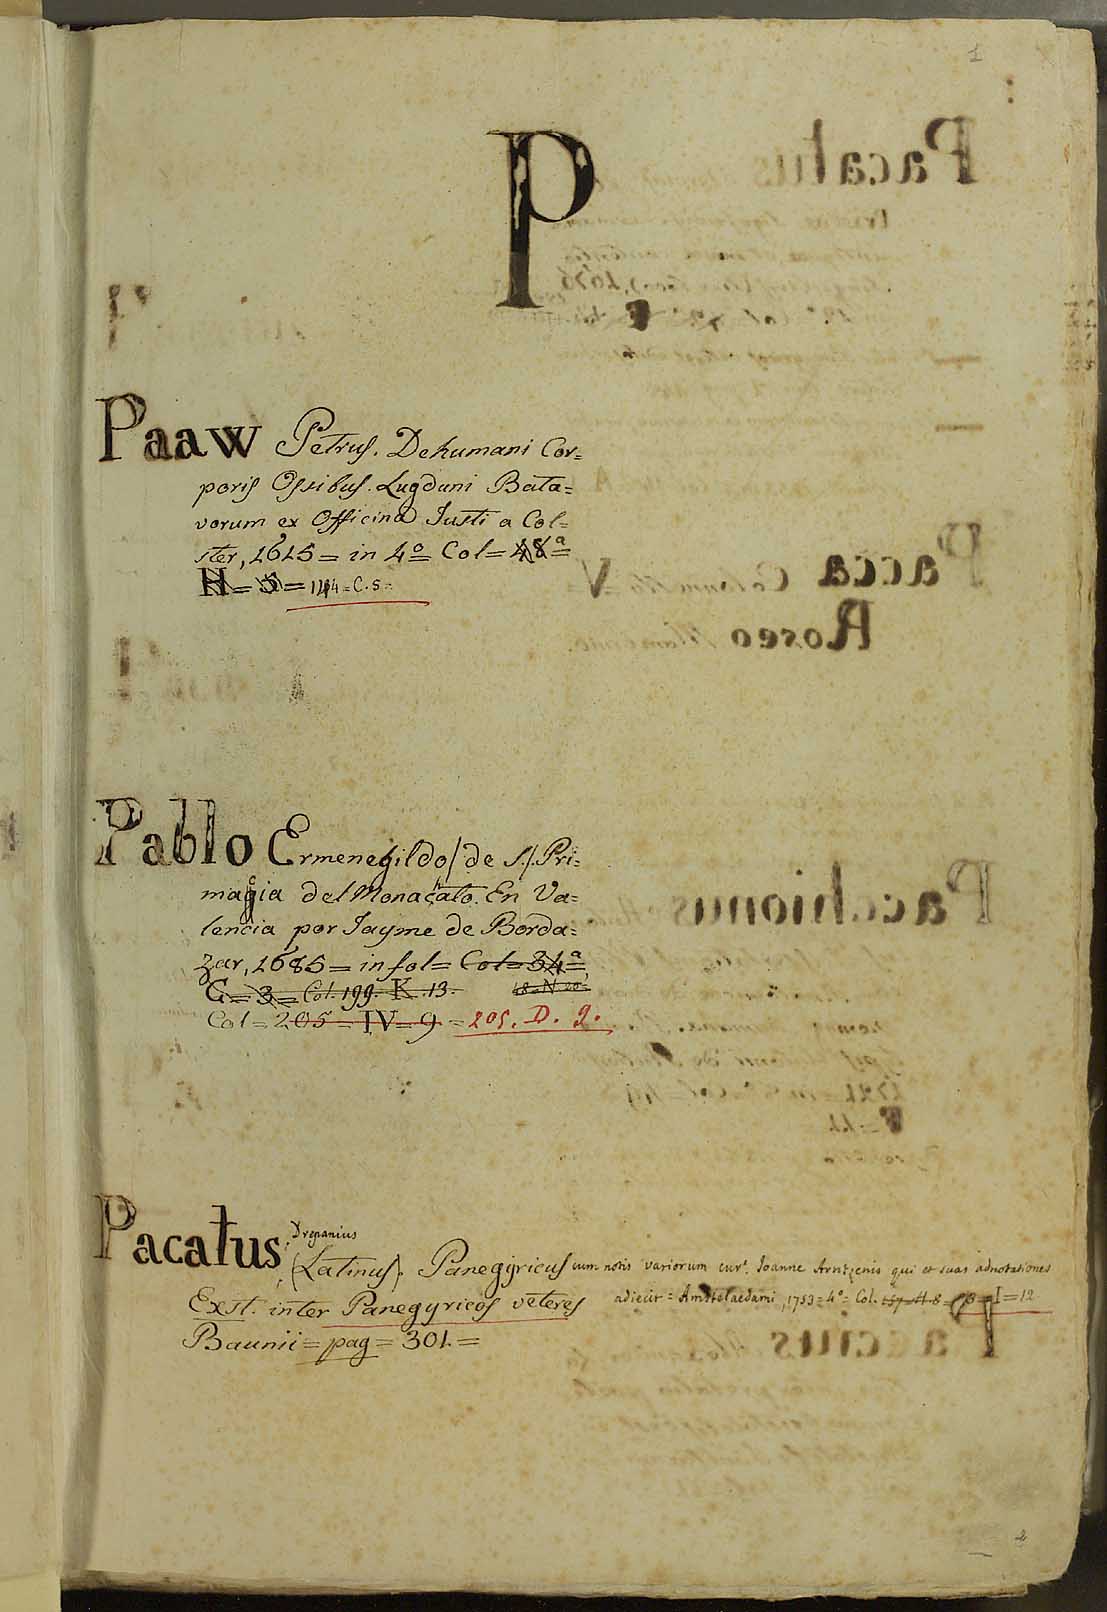 1
P
Paaw Petrus. De humani Cor=
poris Ossibus. Lugduni Bata=
vorum ex Officina Iusti a Col=
ster, 1615 = in 4º = Col = 48ª =
H = 5 = 144 = C. 5 =
Pablo Ermenegildo /de S./ Pri=
magia del Monacato. En Va=
lencia por Jayme de Borda=
zar, 1685 = in fol = Col = 34ª =
G = 3 = Col. 199. K. 13. 18. N. 20.
Col = 205 = IV = 9 = 205. D. 9.
Pacatus, Drepanius
(Latinus). Panegyricus cum notis variorum cur.ᵗ Joanne Arntzenis qui et suas adnotationes
adiecit = Amstelaedami, 1753 = 4º = Col. 157 = H = 8 = 78 = I = 12
Exst. inter Panegyricos veteres
Baunii = pag = 301. =
2